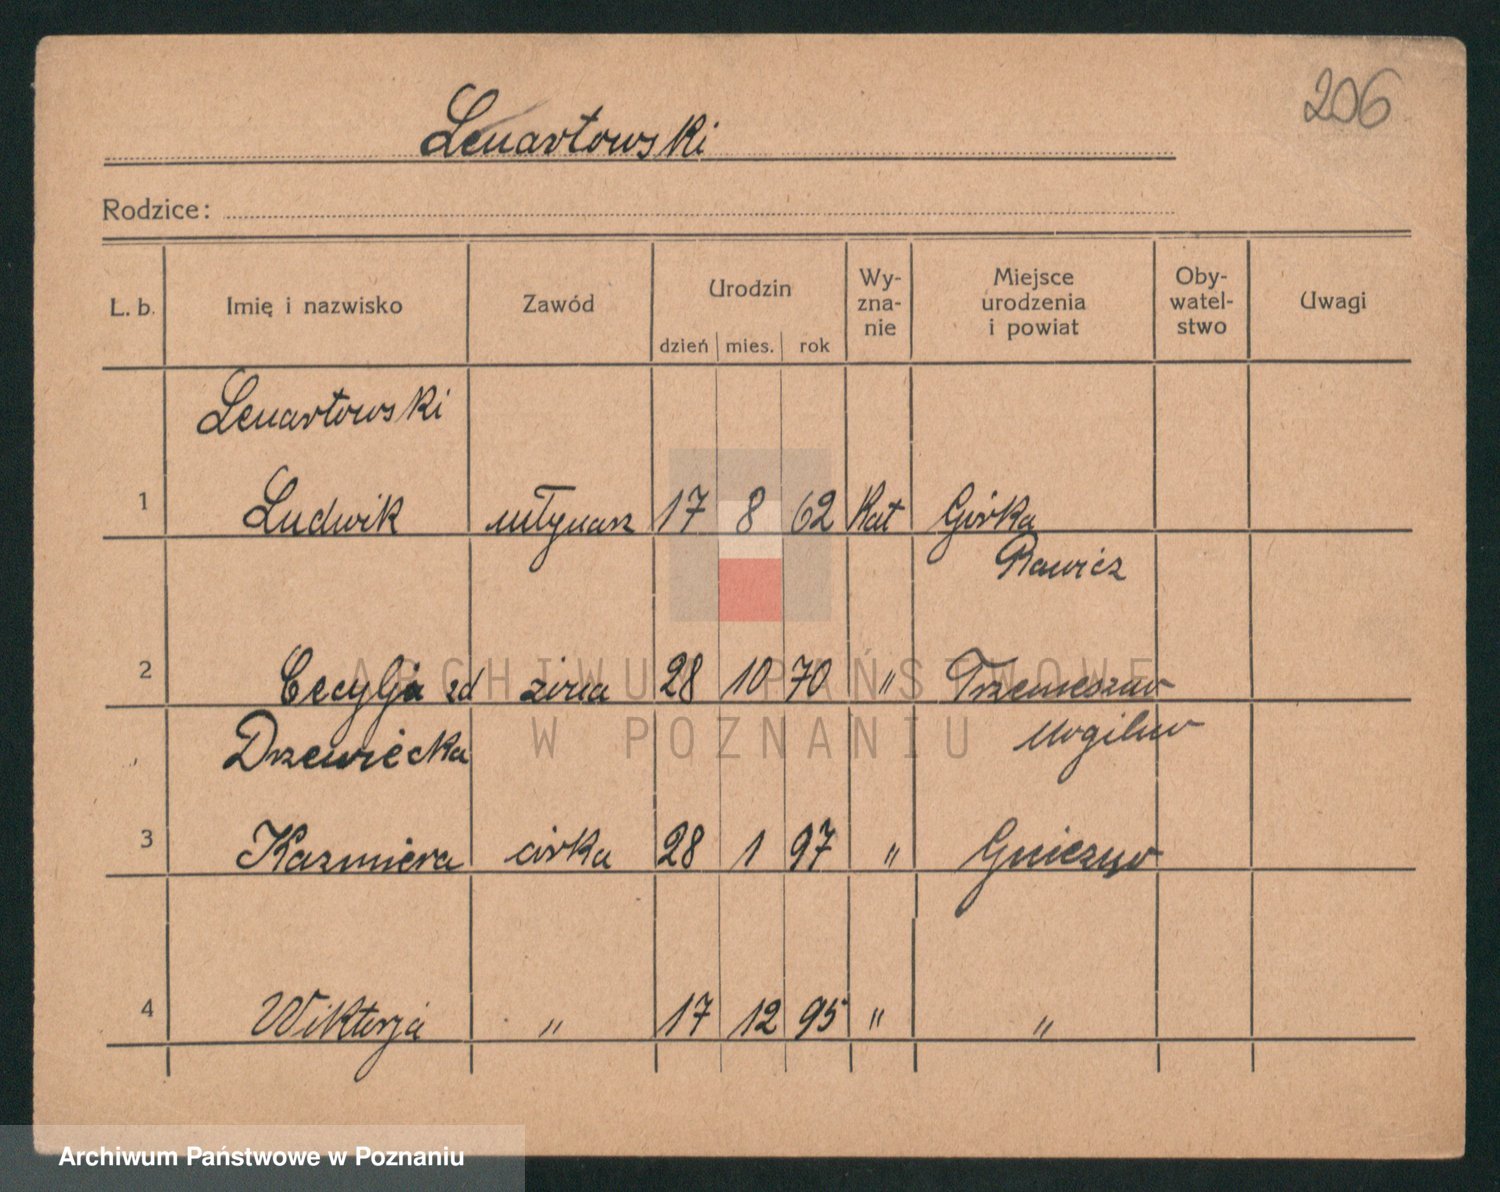 206
Lenartowski
Rodzice:
L. b. Imię i nazwisko Zawód Urodzin dzień mies. rok Wy-zna-nie Miejsce urodzenia i powiat Oby-watel-stwo Uwagi
Lenartowski
1 Ludwik młynarz 17 8 62 Kat Górka
Rawicz
2 Cecylja zd żona 28 10 70 " Trzemeszno
Drzewiecka Mogilno
3 Kazmiera córka 28 1 97 " Gniezno
4 Wiktorja " 17 12 95 " "
ARCHIWUM PAŃSTWOWE
W POZNANIU
Archiwum Państwowe w Poznaniu